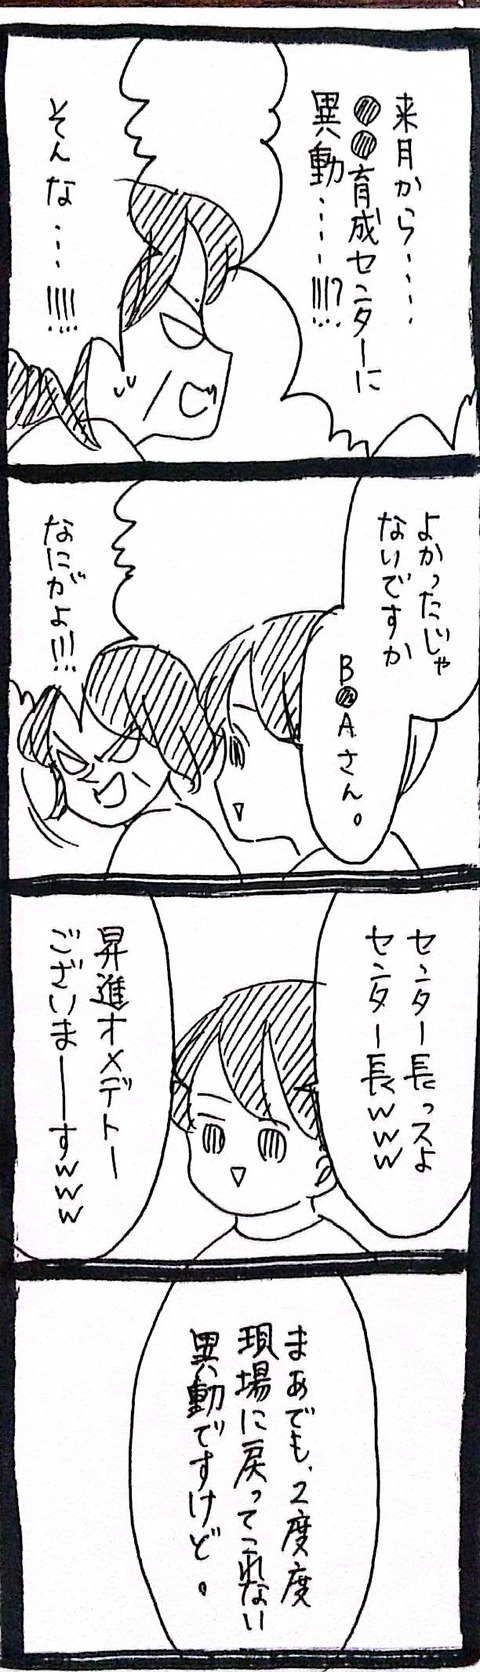 来月から……
●●育成センターに
異動……!!!?
そんな…!!!!
よかったじゃ
ないですか
B●Aさん。
なにがよ!!!
センター長っスよ
センター長www
昇進オメデトー
ございまーーすwww
まあでも、2度度
現場に戻ってこれない
異動ですけど。